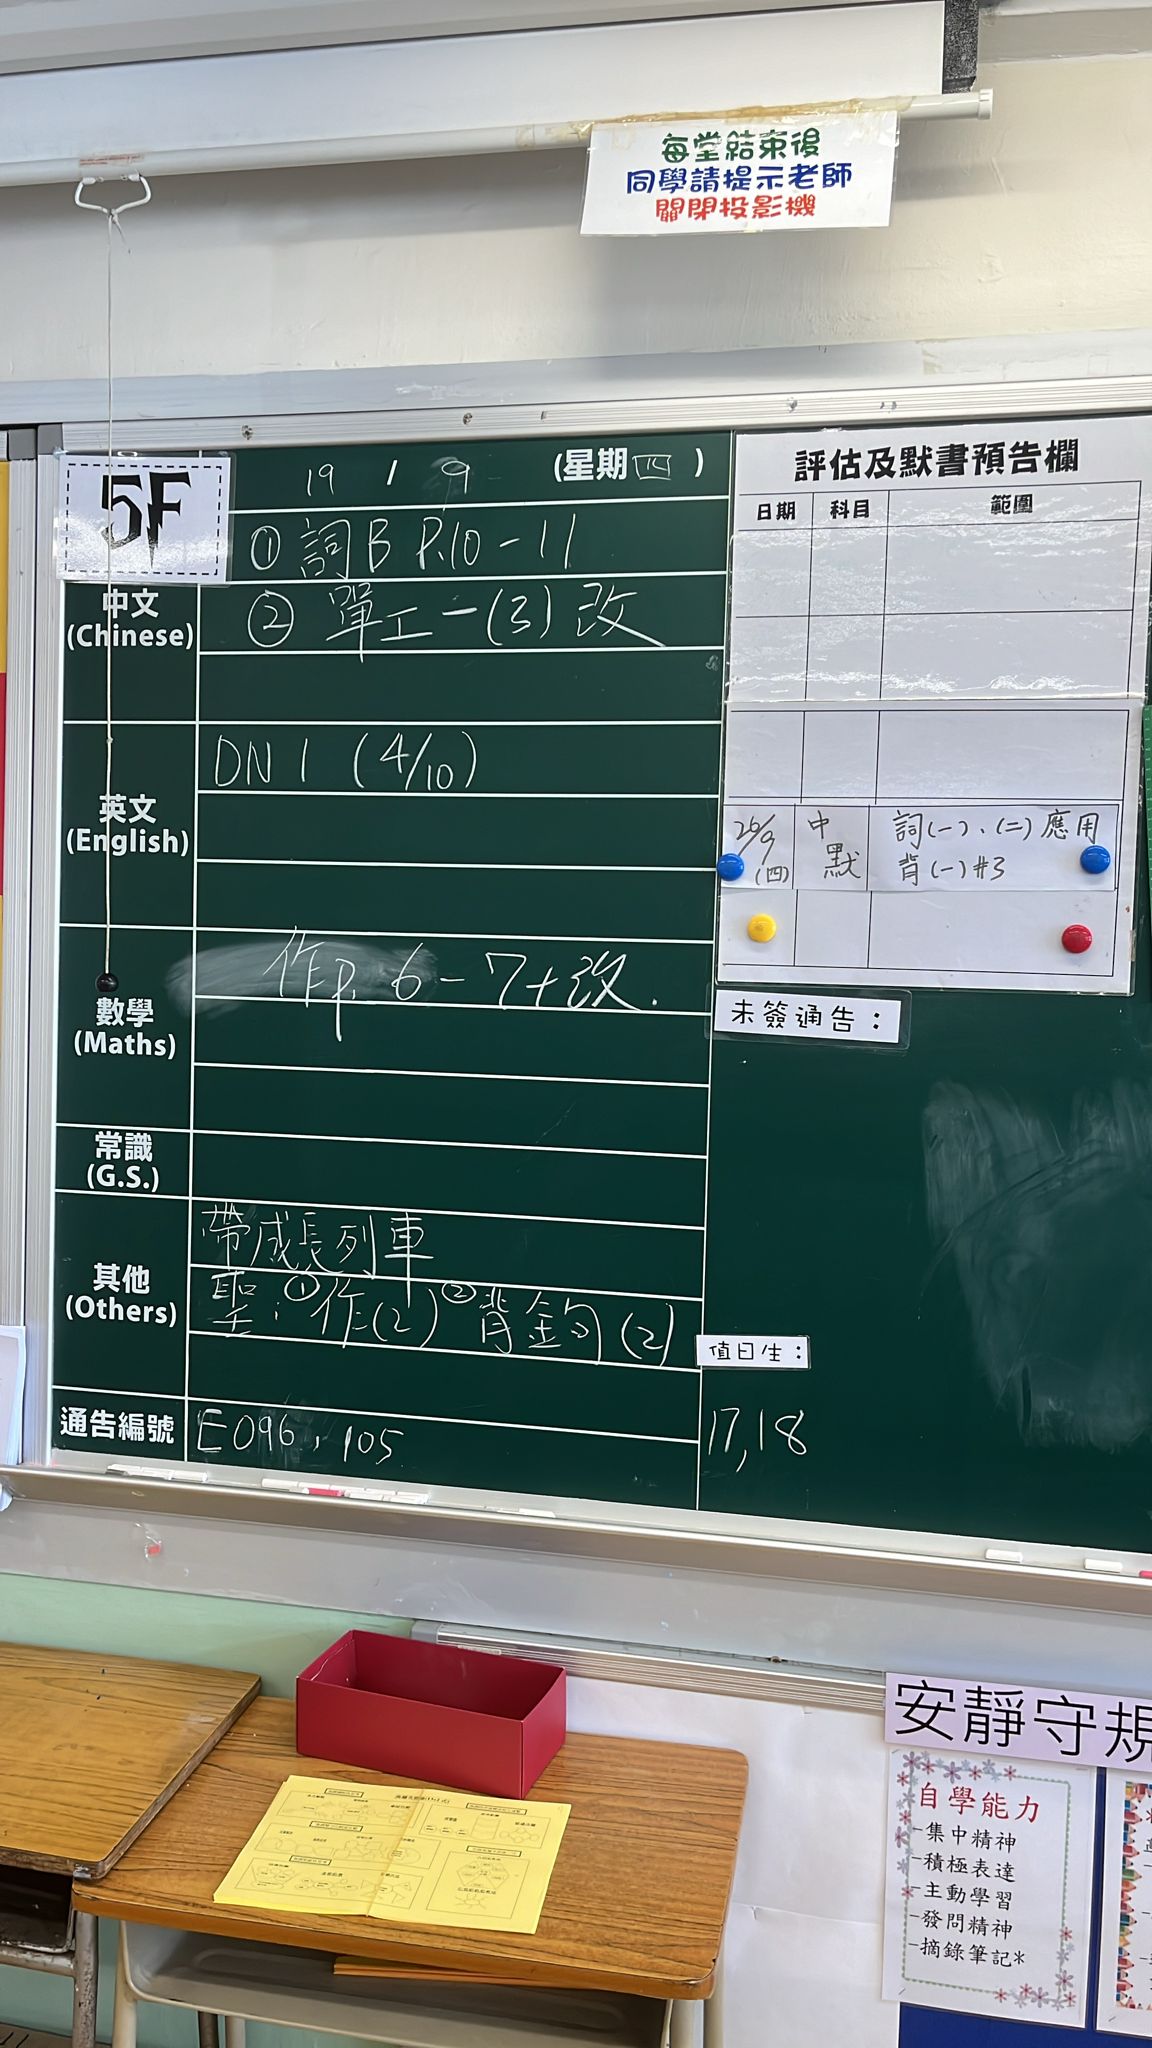 每堂結束後
同學請提示老師
關閉投影機
5F
19 / 9 (星期四)
中文
(Chinese)
① 詞B P.10-11
② 單工一(3)改
英文
(English)
DN 1 (4/10)
數學
(Maths)
作P. 6-7+改.
常識
(G.S.)
其他
(Others)
帶成長列車
聖：①作(2) ②背金句(2)
通告編號
E096, 105
評估及默書預告欄
日期 科目 範圍
26/9 (四) 中默 詞(一)、(二)應用
背(一)#3
未簽通告：
值日生：
17,18
安靜守規
自學能力
-集中精神
-積極表達
-主動學習
-發問精神
-摘錄筆記*